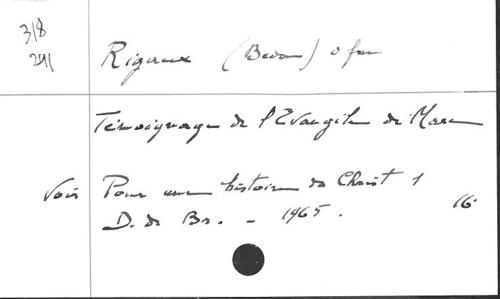 318
241
Rigaux (Beda) o f m
Témoignage de l'Evangile de Marc
Voir Pour une histoire de Christ 1
D. de Br. - 1965. 16